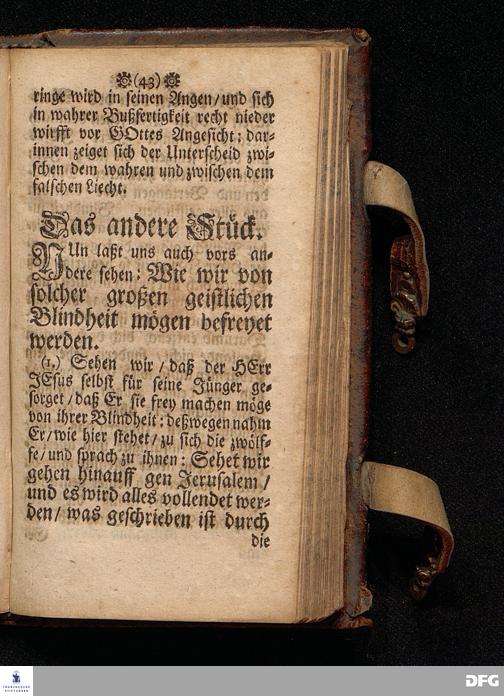 (43)
ringe wird in seinen Augen/und sich
in wahrer Bußfertigkeit recht nieder
wirfft vor GOttes Angesicht; dar-
innen zeiget sich der Unterscheid zwi-
schen dem wahren und zwischen dem
falschen Liecht.
Das andere Stück.
NUn laßt uns auch vors an-
dere sehen: Wie wir von
solcher großen geistlichen
Blindheit mögen befreyet
werden.
(1.) Sehen wir/ daß der HErr
JEsus selbst für seine Jünger ge-
sorget/daß Er sie frey machen möge
von ihrer Blindheit: deßwegen nahm
Er/wie hier stehet/zu sich die zwölf-
fe/und sprach zu ihnen: Sehet wir
gehen hinauff gen Jerusalem/
und es wird alles vollendet wer-
den/ was geschrieben ist durch
die
FRANCKESCHE
STIFTUNGEN
DFG